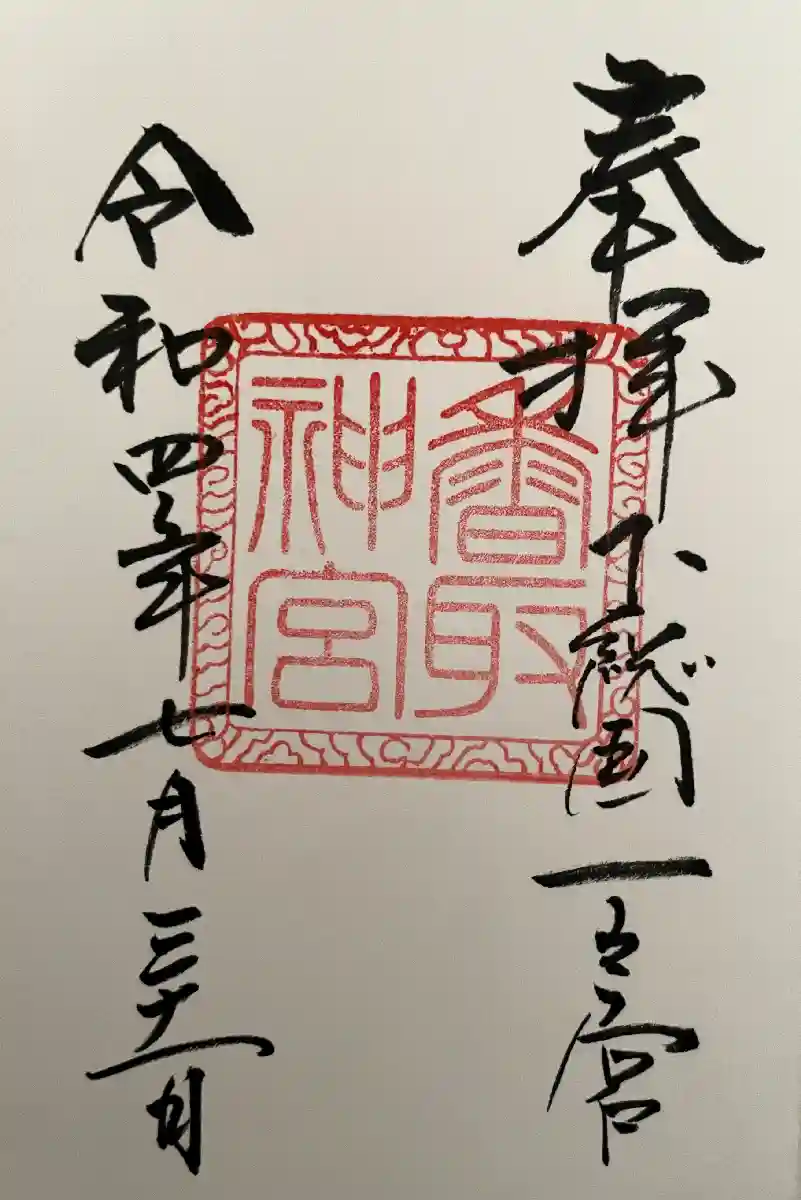 奉拝
下総国一之宮
香取
神宮
令和四年七月三十一日